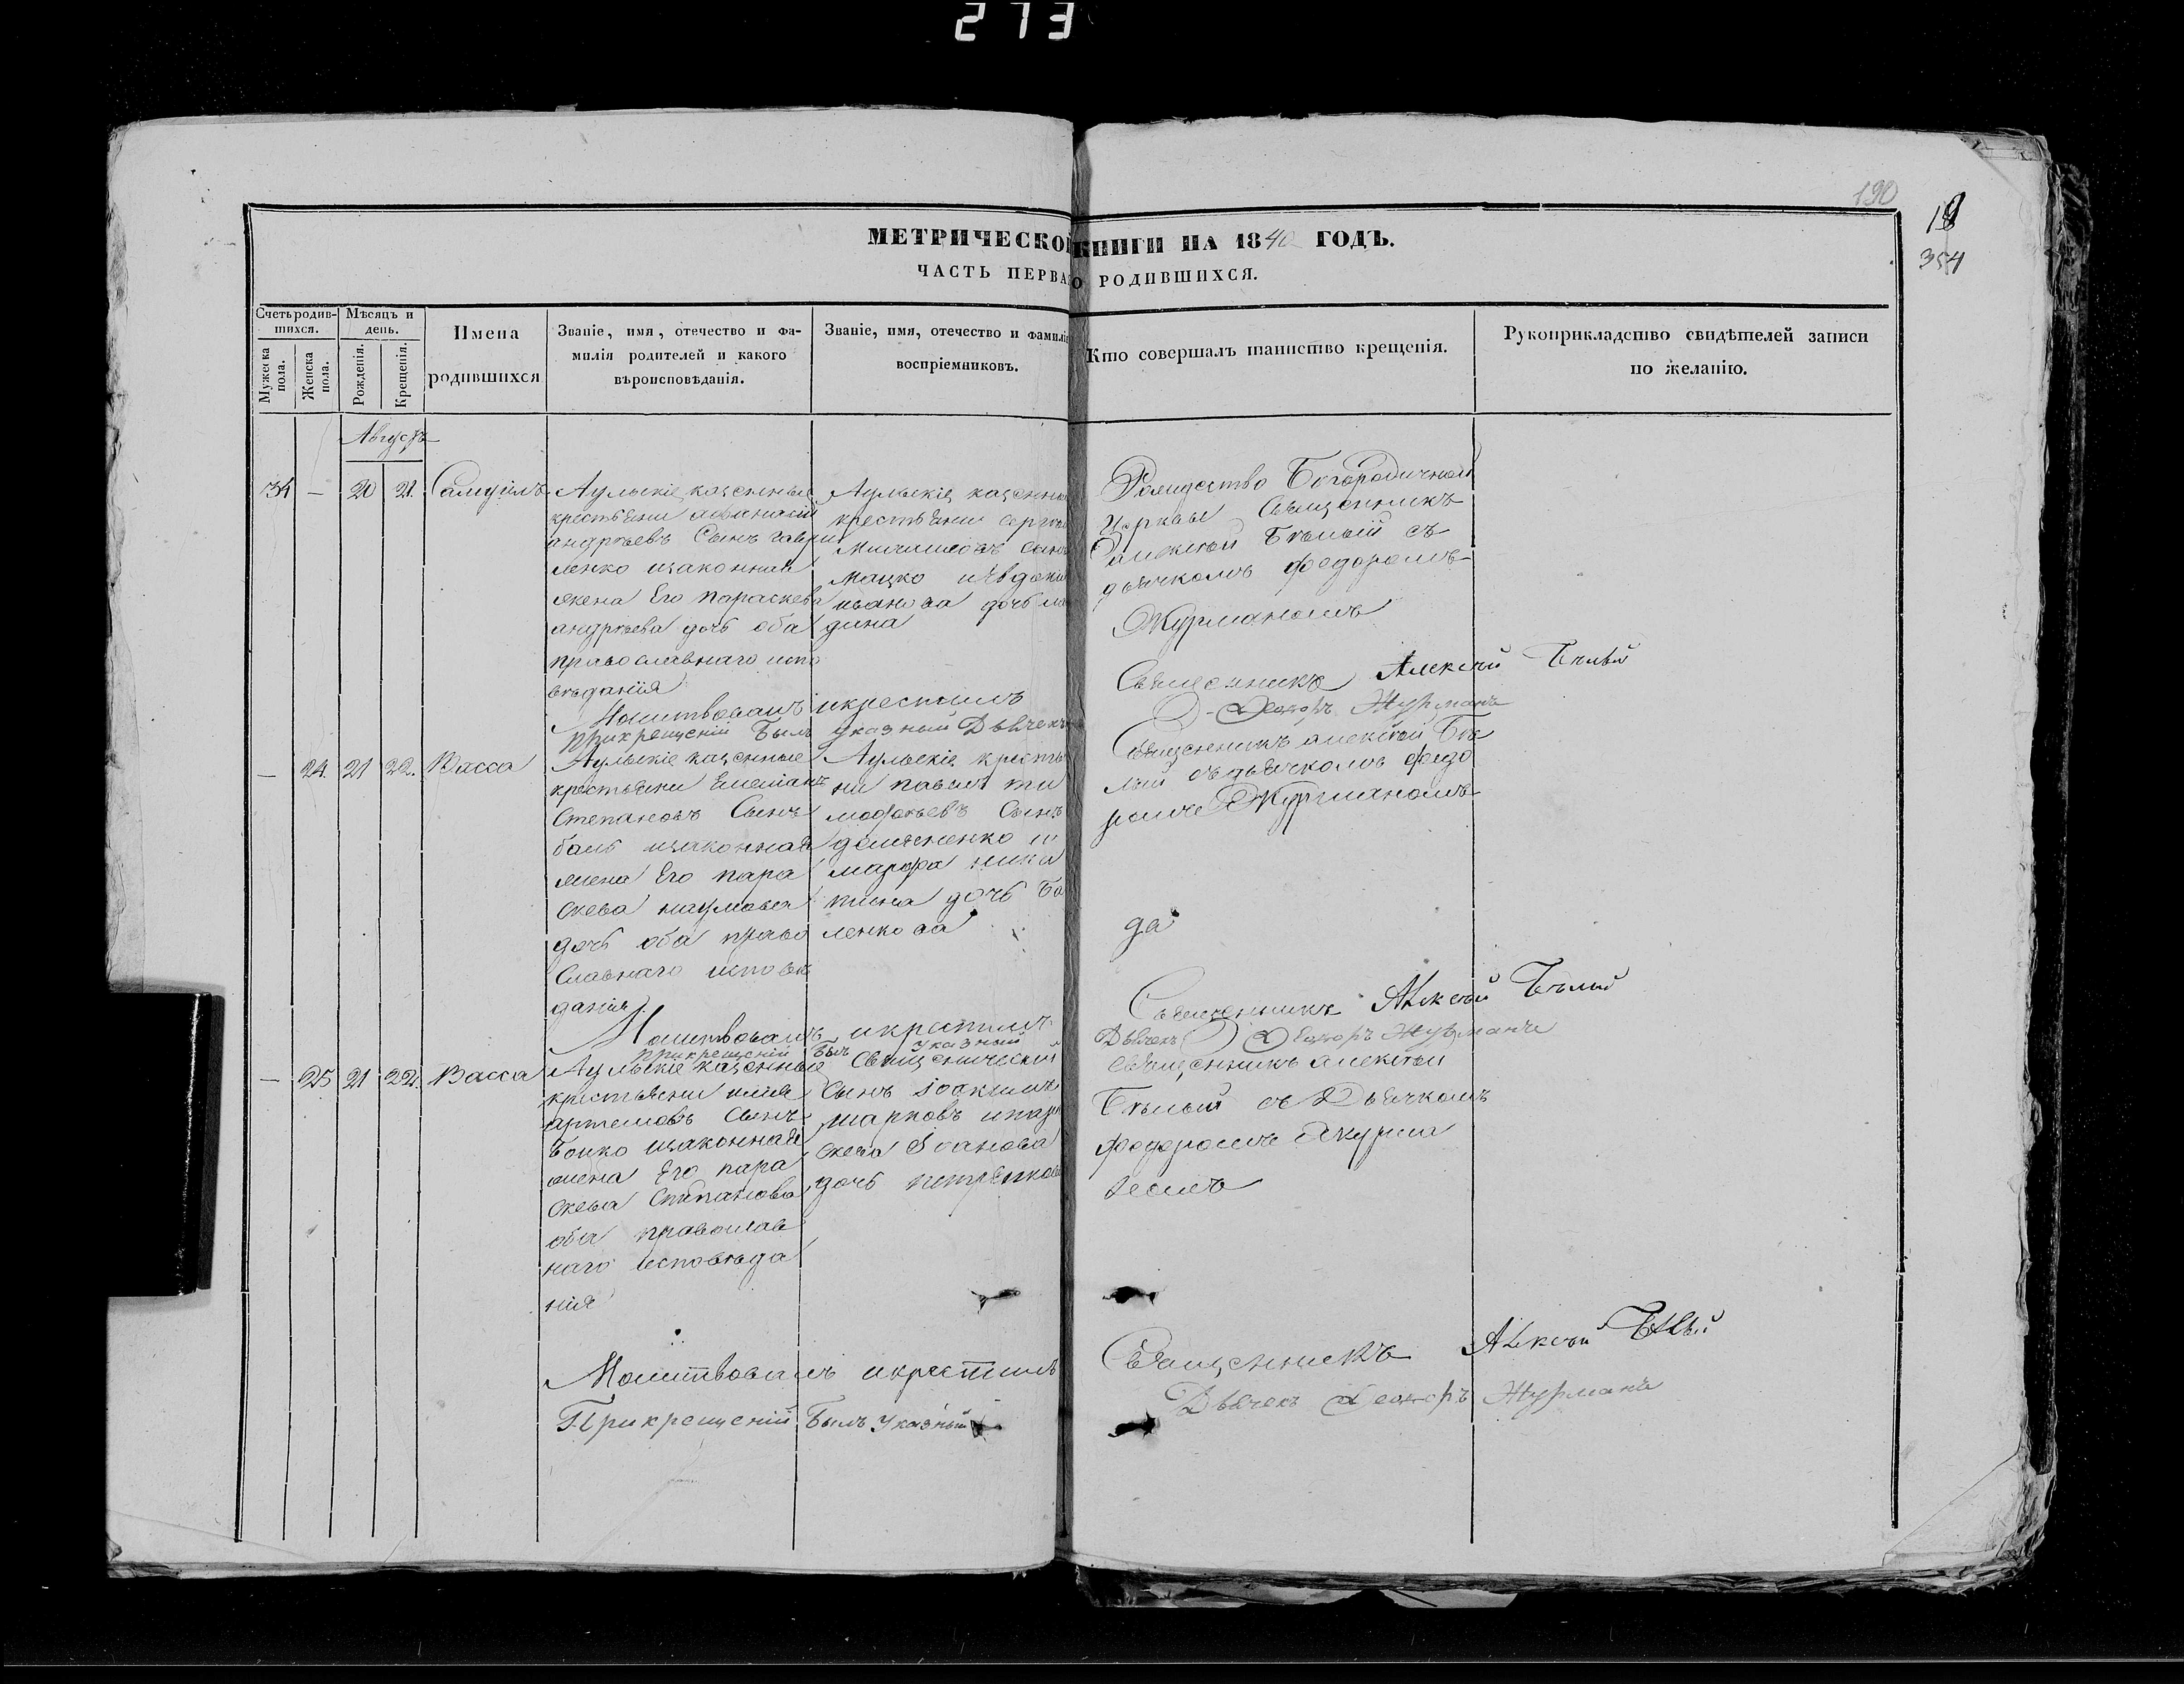 273
190
19
354
МЕТРИЧЕСКОЙ КНИГИ НА 1840 ГОДЪ.
ЧАСТЬ ПЕРВАЯ О РОДИВШИХСЯ.
Счетъ родив-
шихся.
Мужеска
пола.
Женска
пола.
Мѣсяцъ и
день.
Рожденія.
Крещенія.
Имена
родившихся
Званіе, имя, отечество и фа-
милія родителей и какого
вѣроисповѣданія.
Званіе, имя, отечество и фамилія
воспріемниковъ.
Кто совершалъ таинство крещенія.
Рукоприкладство свидѣтелей записи
по желанію.
Августъ
34 — 20 21. Самуилъ
Аульскіе казенные
крестьяни Афанасій
андрѣевъ Сынъ гаври
ленко изаконная
жена Его параскева
андрѣева дочь оба
православнаго испо
вѣданія
Аульскіе казенны
крестьяни
сынъ
мацко иЕвдокія
иванова дочь
дина
Рождество Богородичной
Церкви Священникъ
алексѣй Бѣлый съ
дьячкомъ федоромъ
Журманомъ
Молитвовалъ икрестилъ Священникъ Алексѣй Бѣлый
прикрещеніи Былъ указный Дьячекъ Ѳеодоръ Журманъ
— 24. 21 22. Васса
Аульскіе казенные
крестьяни Емелианъ
Степановъ Сынъ
баль изаконная
жена Его пара
скева наумова
дочь оба право
славнаго исповѣ
данія
Аульскіе крестья
ни павелъ ти
мофѣевъ Сынъ
демяненко и
марфа ники
тина дочь Ба
ленкова
Священникъ алексѣй Бѣ
лый съ дьячкомъ федо
ромъ Журманомъ
да
Молитвовалъ икрестилъ Священникъ Алексѣй Бѣлый
прикрещеніи Былъ указный Дьячекъ Ѳеодоръ Журманъ
— 25 21 22. Васса
Аульскіе казенные
крестьяни илия
артемовъ Сынъ
Бойко изаконная
жена Его пара
скева Степанова
оба православ
наго исповѣда
нія
Священическій
Сынъ іоакимъ
марковъ ипара
скева Іванова
дочь петренкова
священникъ алексѣй
Бѣлый съ Дьячкомъ
федоромъ Журма
номъ
Молитвовалъ икрестилъ Священникъ Алексѣй Бѣлый
Прикрещеніи Былъ указный Дьячекъ Ѳеодоръ Журманъ